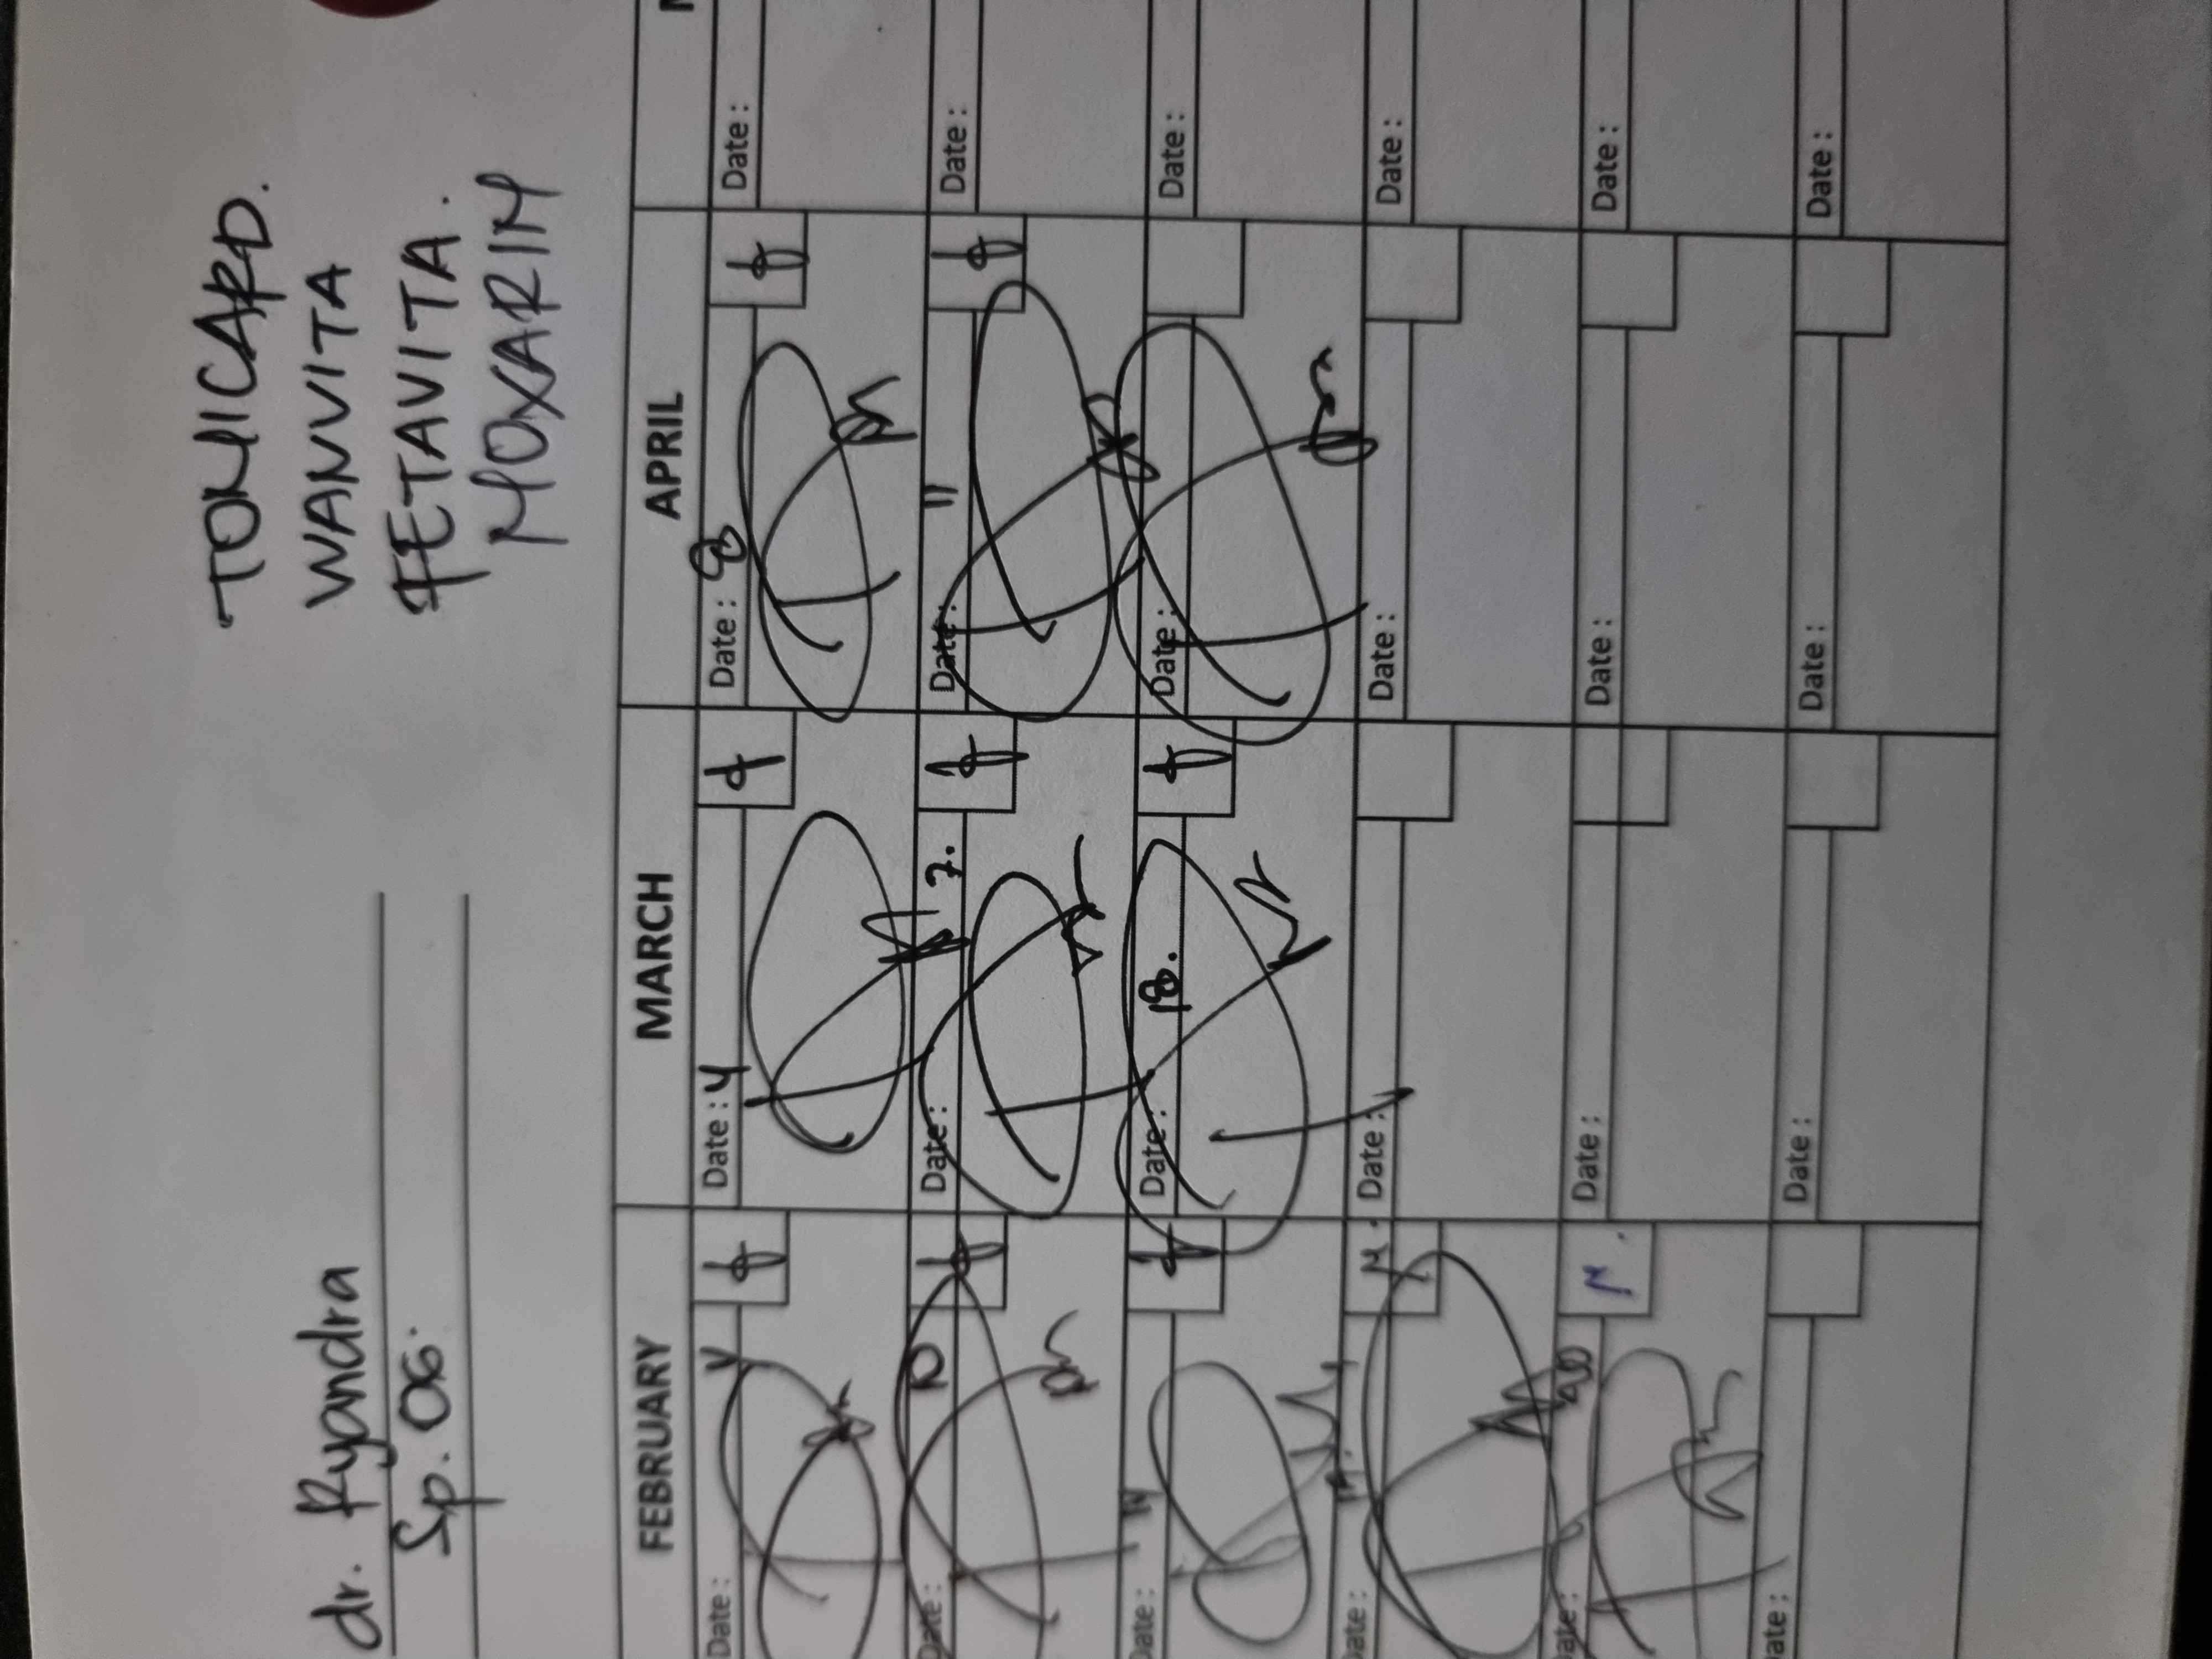 dr. Ryandra
Sp. OG.
TONICARD.
WANVITA
FETAVITA.
MOXARIM
FEBRUARY
MARCH
APRIL
Date: 4
Date: 4
Date: 8
Date:
Date: 10
Date: 7.
Date: 11
Date:
Date:
Date: 18.
Date:
Date:
Date:
Date:
Date:
Date:
Date:
Date:
Date:
Date:
Date:
Date:
Date:
Date: